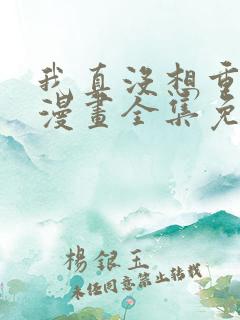 我真沒想重
漫畫全集免
楊銀玉
未经同意禁止转载